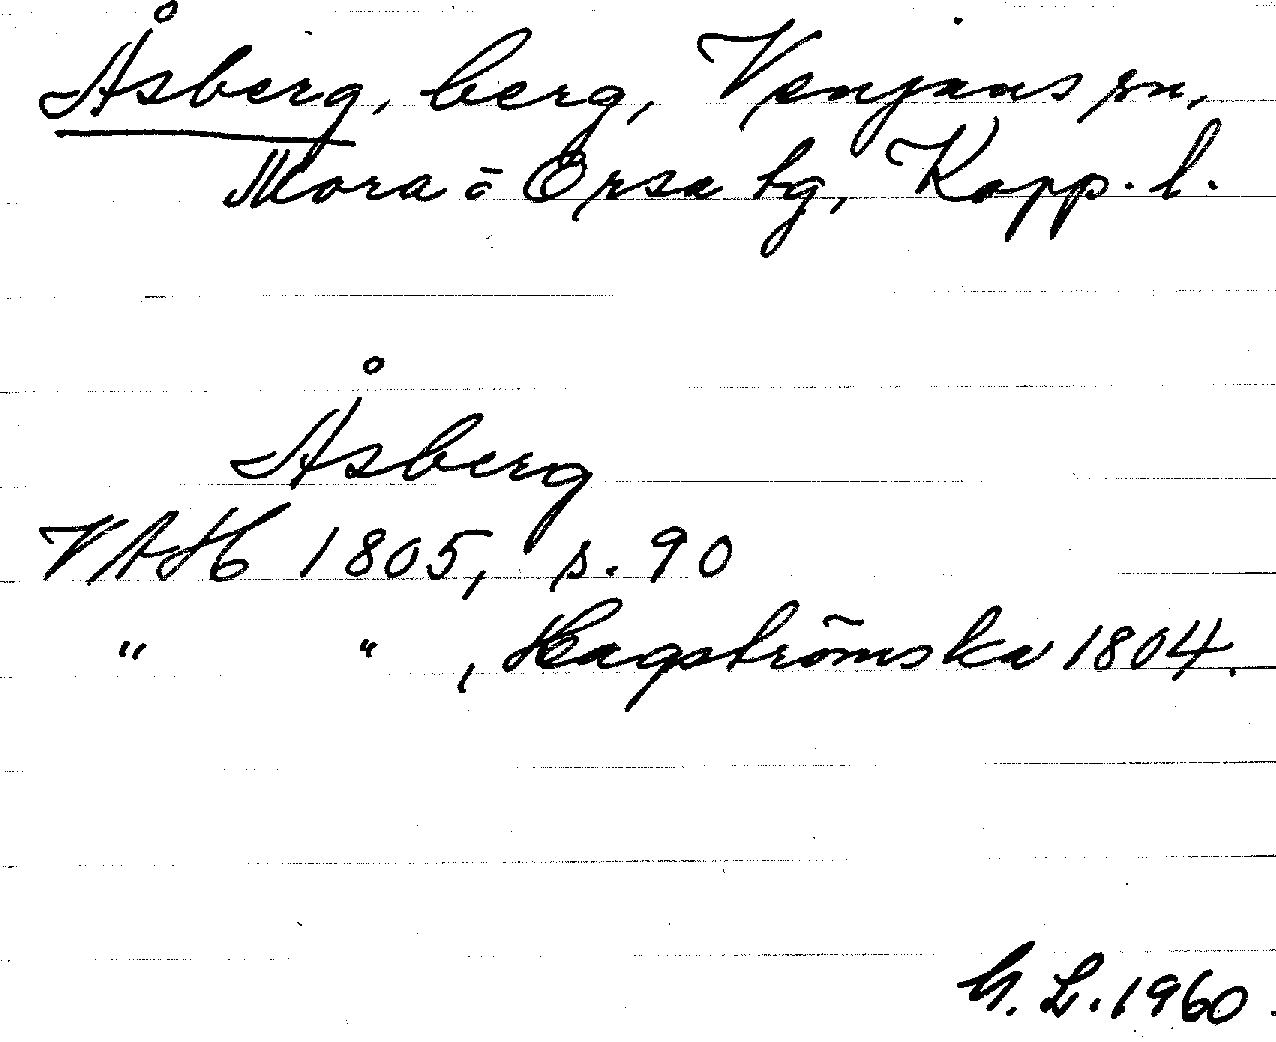 Åsberg, berg, Venjans sn,
Mora o Orsa tg, Kopp. l.
Åsberg
VAH 1805, s. 90
" " , Hagströmska 1804.
G. L. 1960.